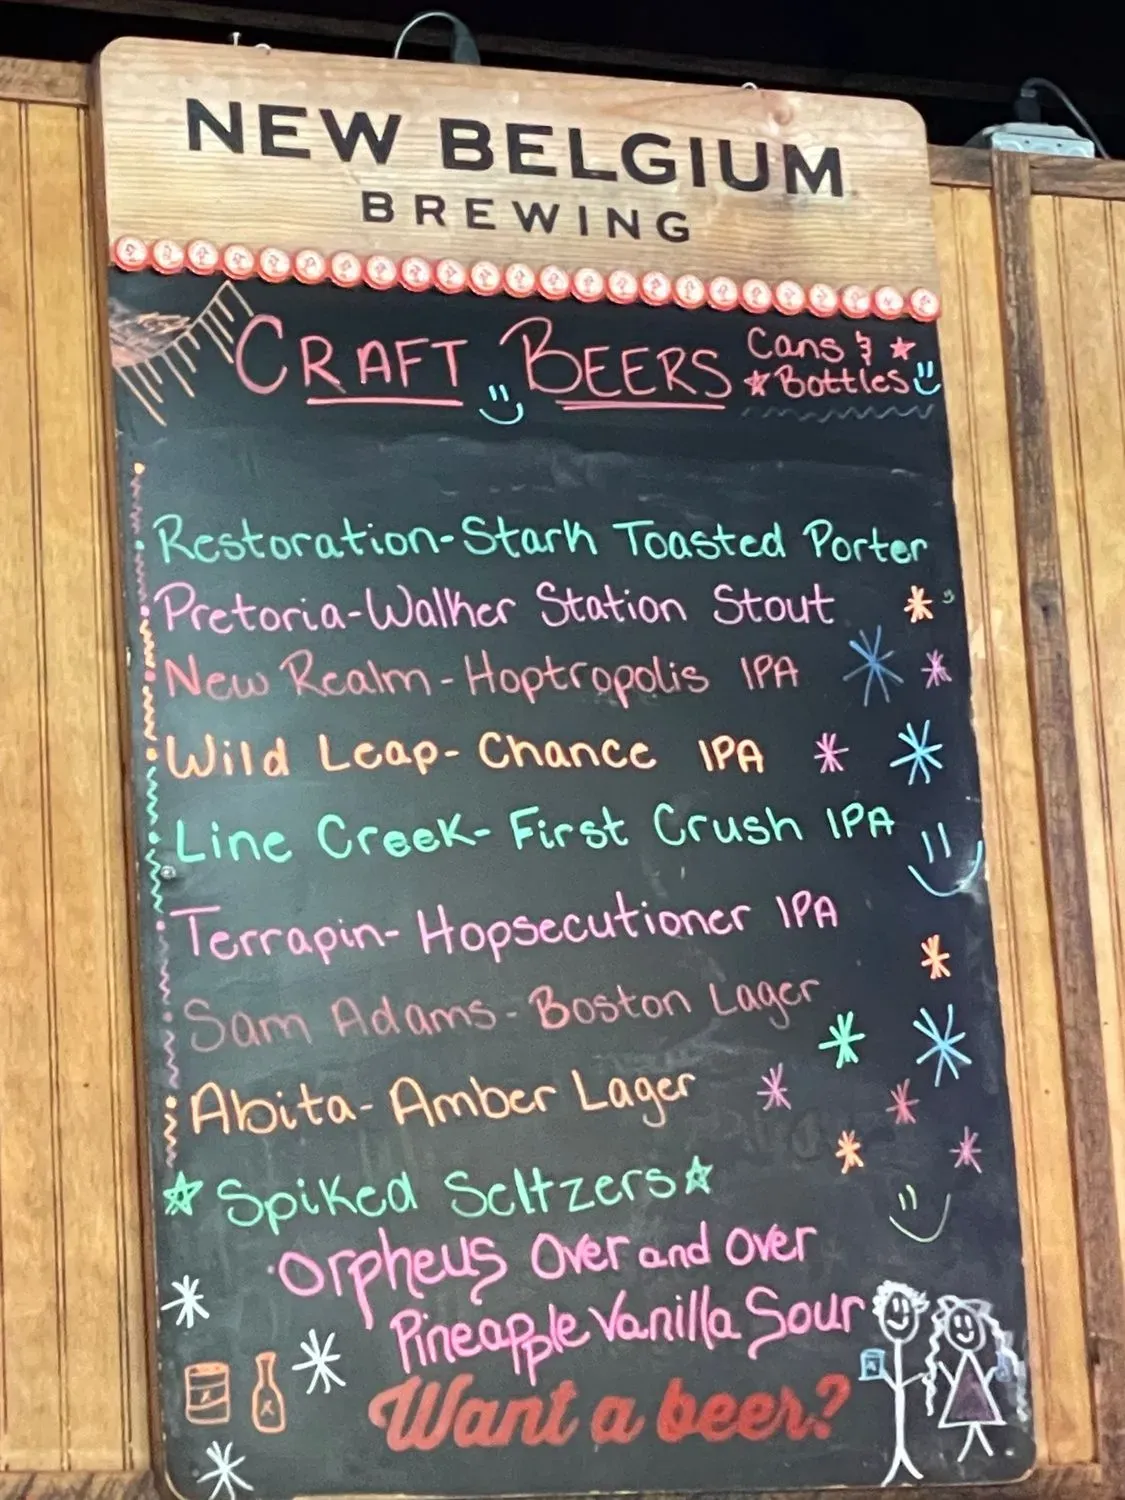 NEW BELGIUM
BREWING
CRAFT BEERS
Cans &
Bottles
Restoration-Stark Toasted Porter
Pretoria-Walker Station Stout
New Realm-Hoptropolis IPA
Wild Leap-Chance IPA
Line Creek-First Crush IPA
Terrapin-Hopsecutioner IPA
Sam Adams-Boston Lager
Abita-Amber Lager
Spiked Seltzers
Orpheus Over and over
Pineapple Vanilla Sour
Want a beer?